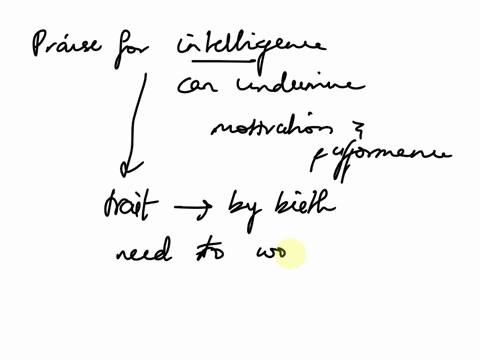 Praise for intelligence
can undermine
motivation &
performance
trait → by birth
need to wo